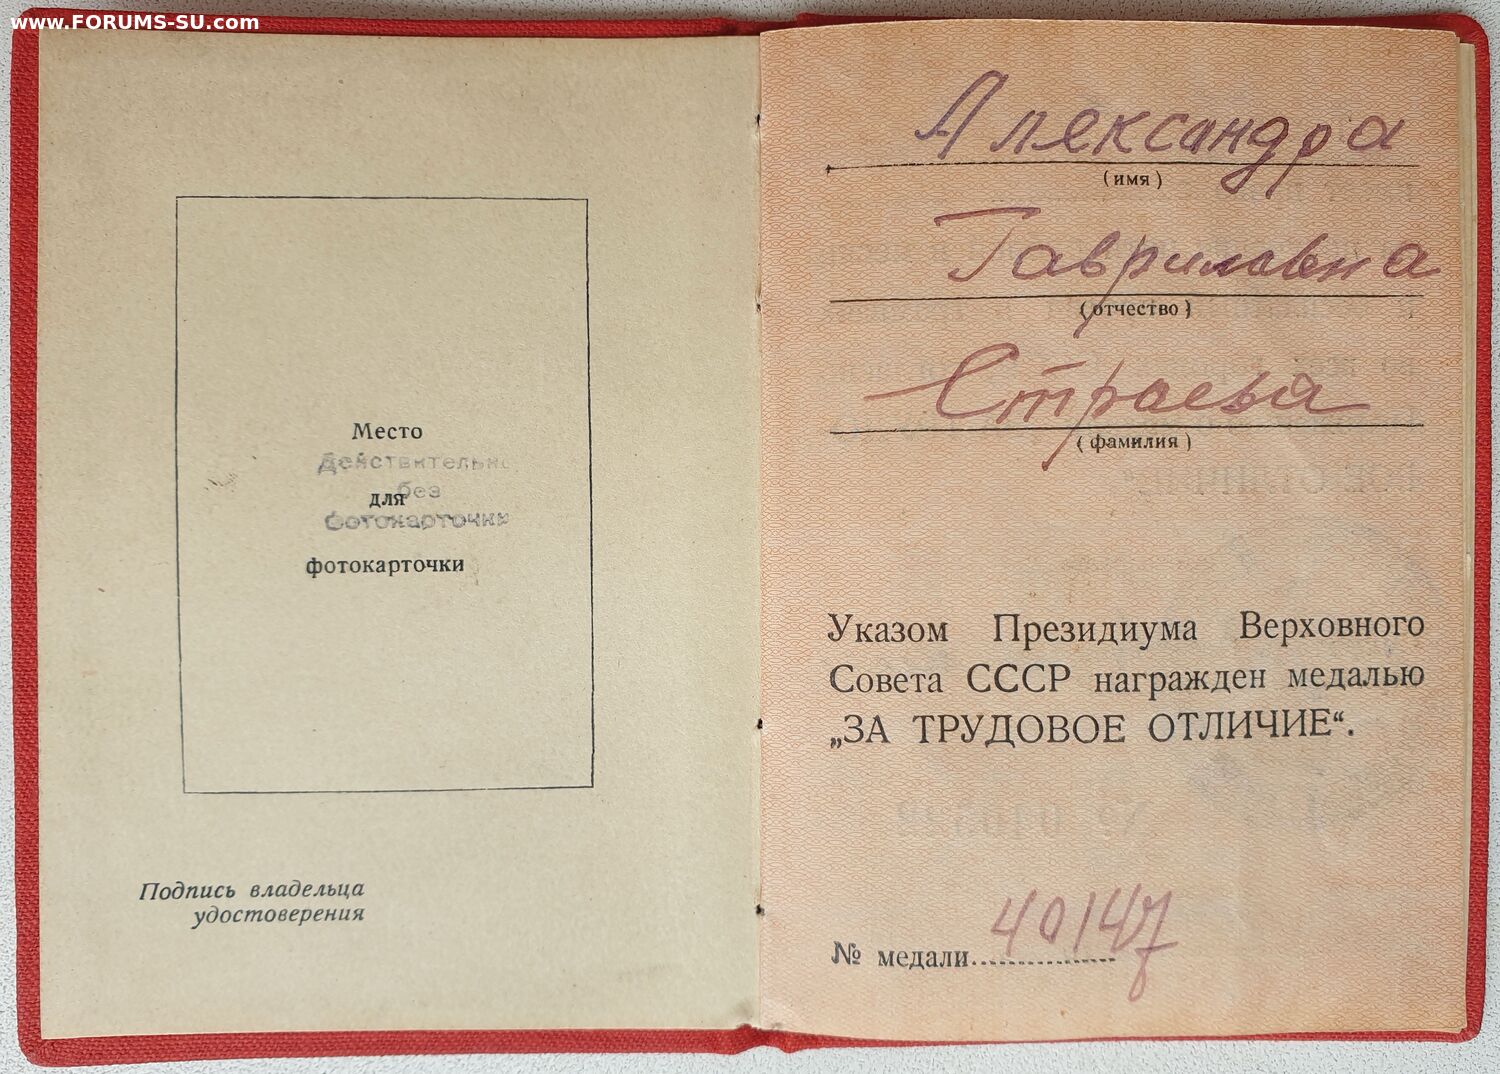 www.FORUMS-SU.com
Место
Действительно
без
для
фотокарточки
фотокарточки
Подпись владельца
удостоверения
Александра
(имя)
Гавриловна
(отчество)
Страева
(фамилия)
Указом Президиума Верховного
Совета СССР награжден медалью
„ЗА ТРУДОВОЕ ОТЛИЧИЕ“.
№ медали 40147